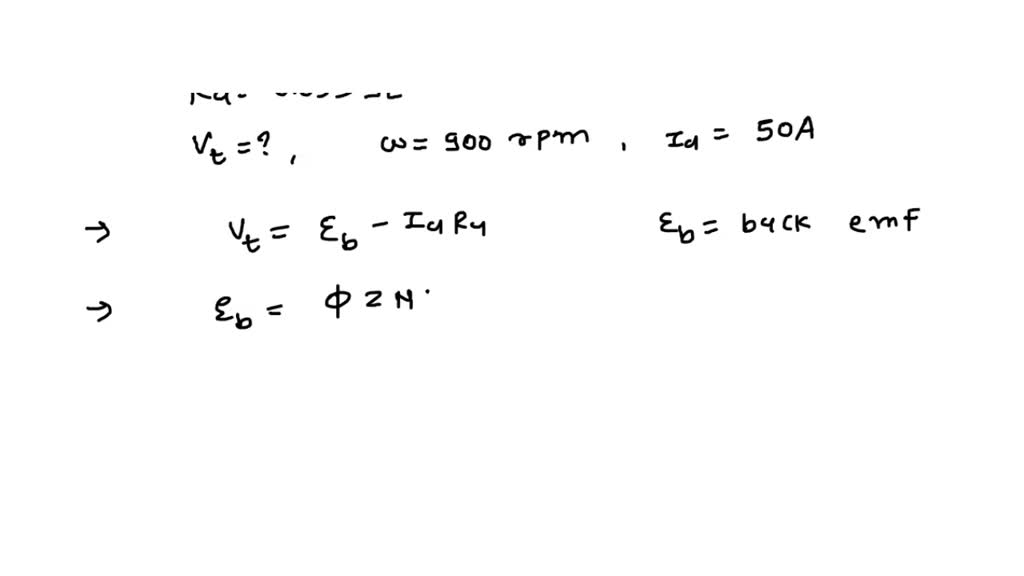 Vt = ?, ω = 900 rpm, Ia = 50A
→ Vt = Eb - Ia Ra Eb = back emf
→ Eb = φ Z N